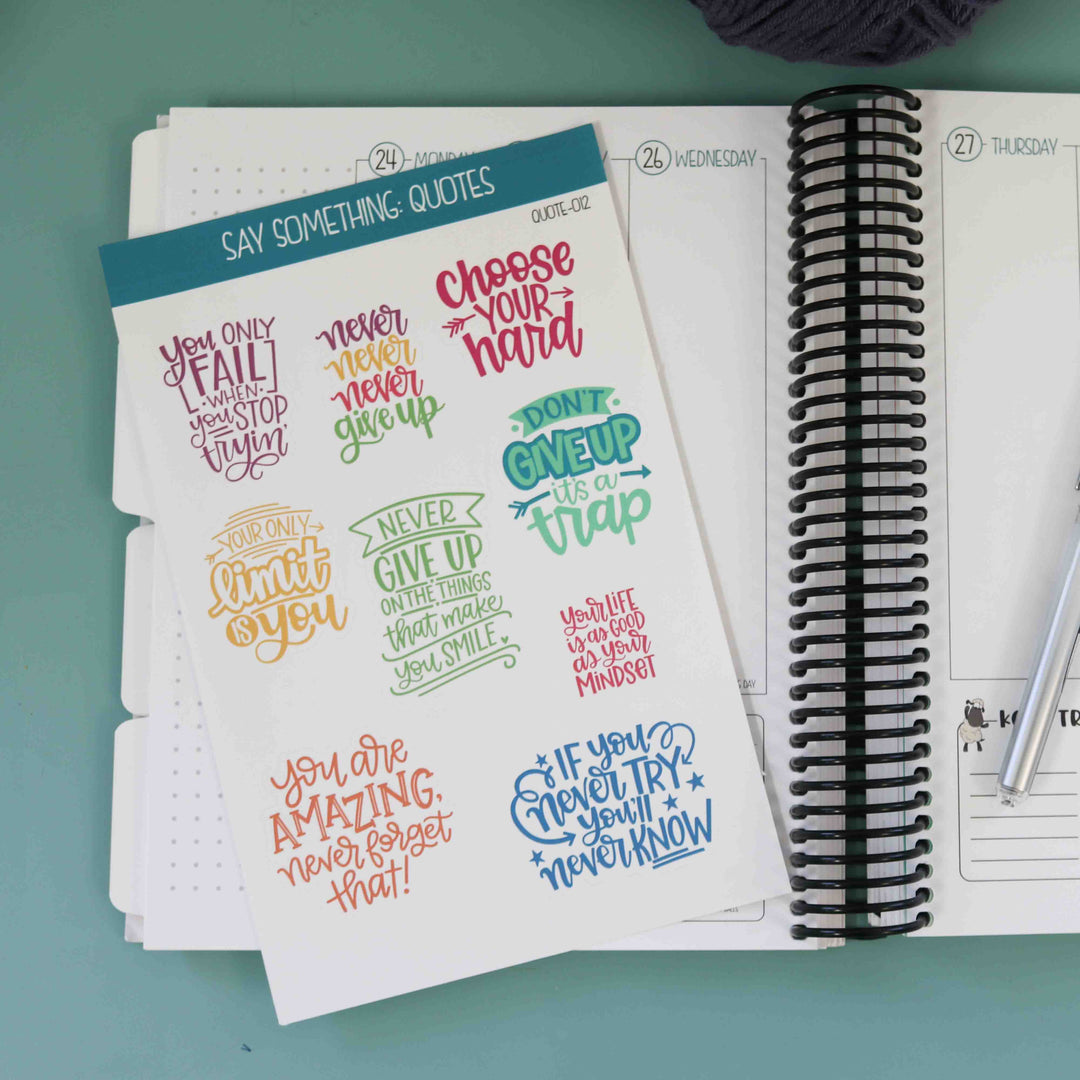 24 MONDAY
26 WEDNESDAY
27 THURSDAY
SAY SOMETHING: QUOTES
QUOTE-012
you ONLY
[FAIL]
·WHEN·
you STOP
tryin'
never
never
never
give up
choose
YOUR
hard
·DON'T·
GIVE UP
it's a
trap
YOUR ONLY
limit
IS you
NEVER
GIVE UP
ON THE THINGS
that make
you SMILE
your LIFE
is as GOOD
as your
MINDSET
you are
AMAZING,
never forget
that!
IF you
never TRY
you'll
never KNOW
DAY